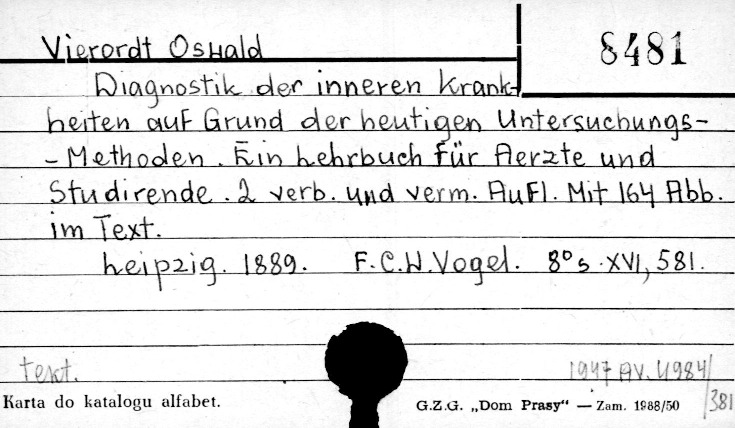 Vierordt Oswald
8481
Diagnostik der inneren Krank-
heiten auf Grund der heutigen Untersuchungs-
- Methoden. Ein Lehrbuch für Aerzte und
Studirende. 2 verb. und verm. Aufl. Mit 164 Abb.
im Text.
Leipzig. 1889. F.C.W. Vogel. 8° s. XVI, 581.
text.
1947 AV. 4984/
381
Karta do katalogu alfabet.
G.Z.G. „Dom Prasy“ — Zam. 1988/50